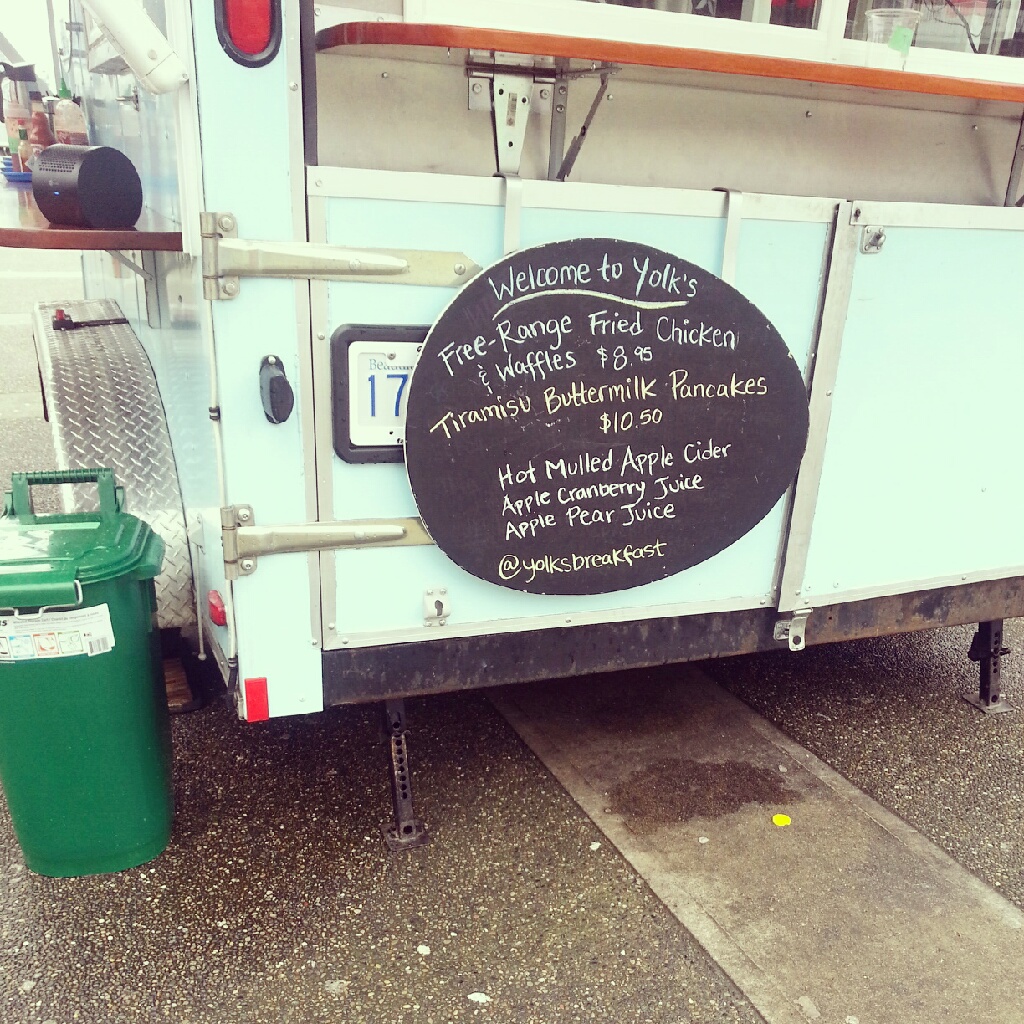 Welcome to Yolk's
Free-Range Fried Chicken
& Waffles $8.95
Tiramisu Buttermilk Pancakes
$10.50
Hot Mulled Apple Cider
Apple Cranberry Juice
Apple Pear Juice
@yolksbreakfast
17